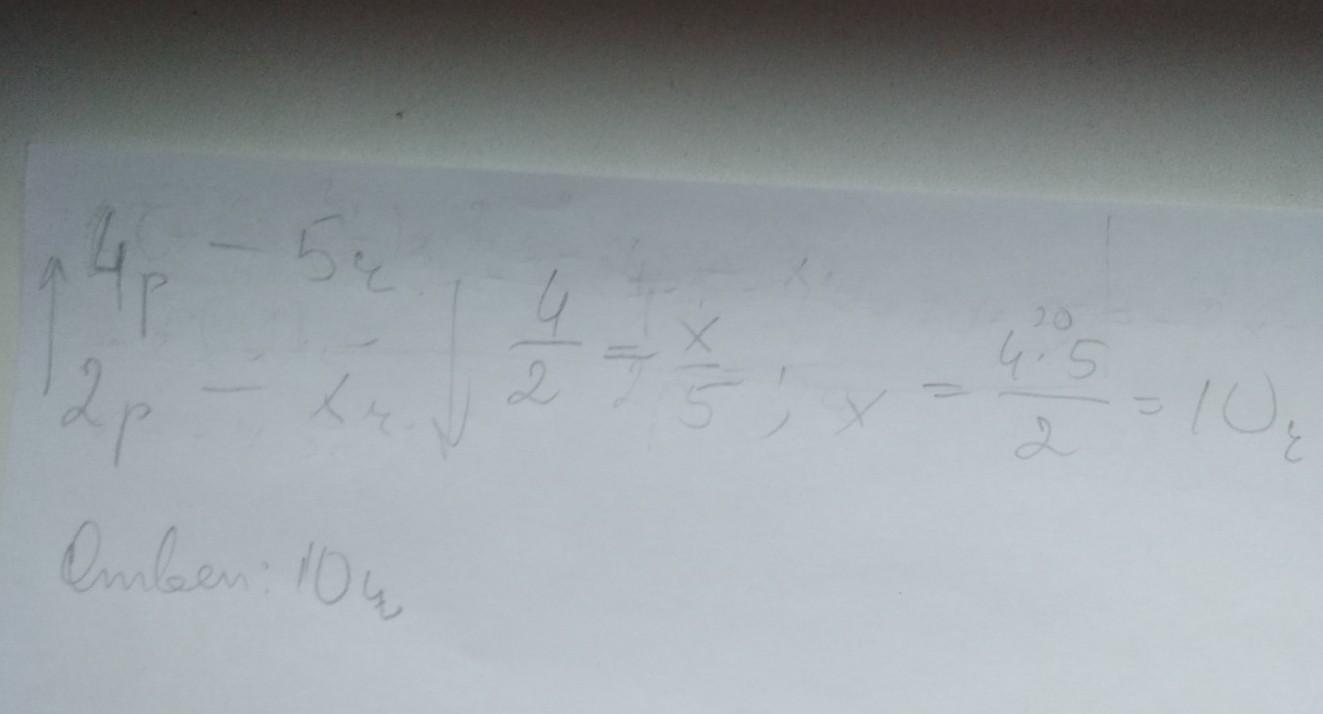 4р – 5ч
2р – xч. 4/2 = x/5 ; x = 4·5/2 = 10ч
20
Ответ: 10ч